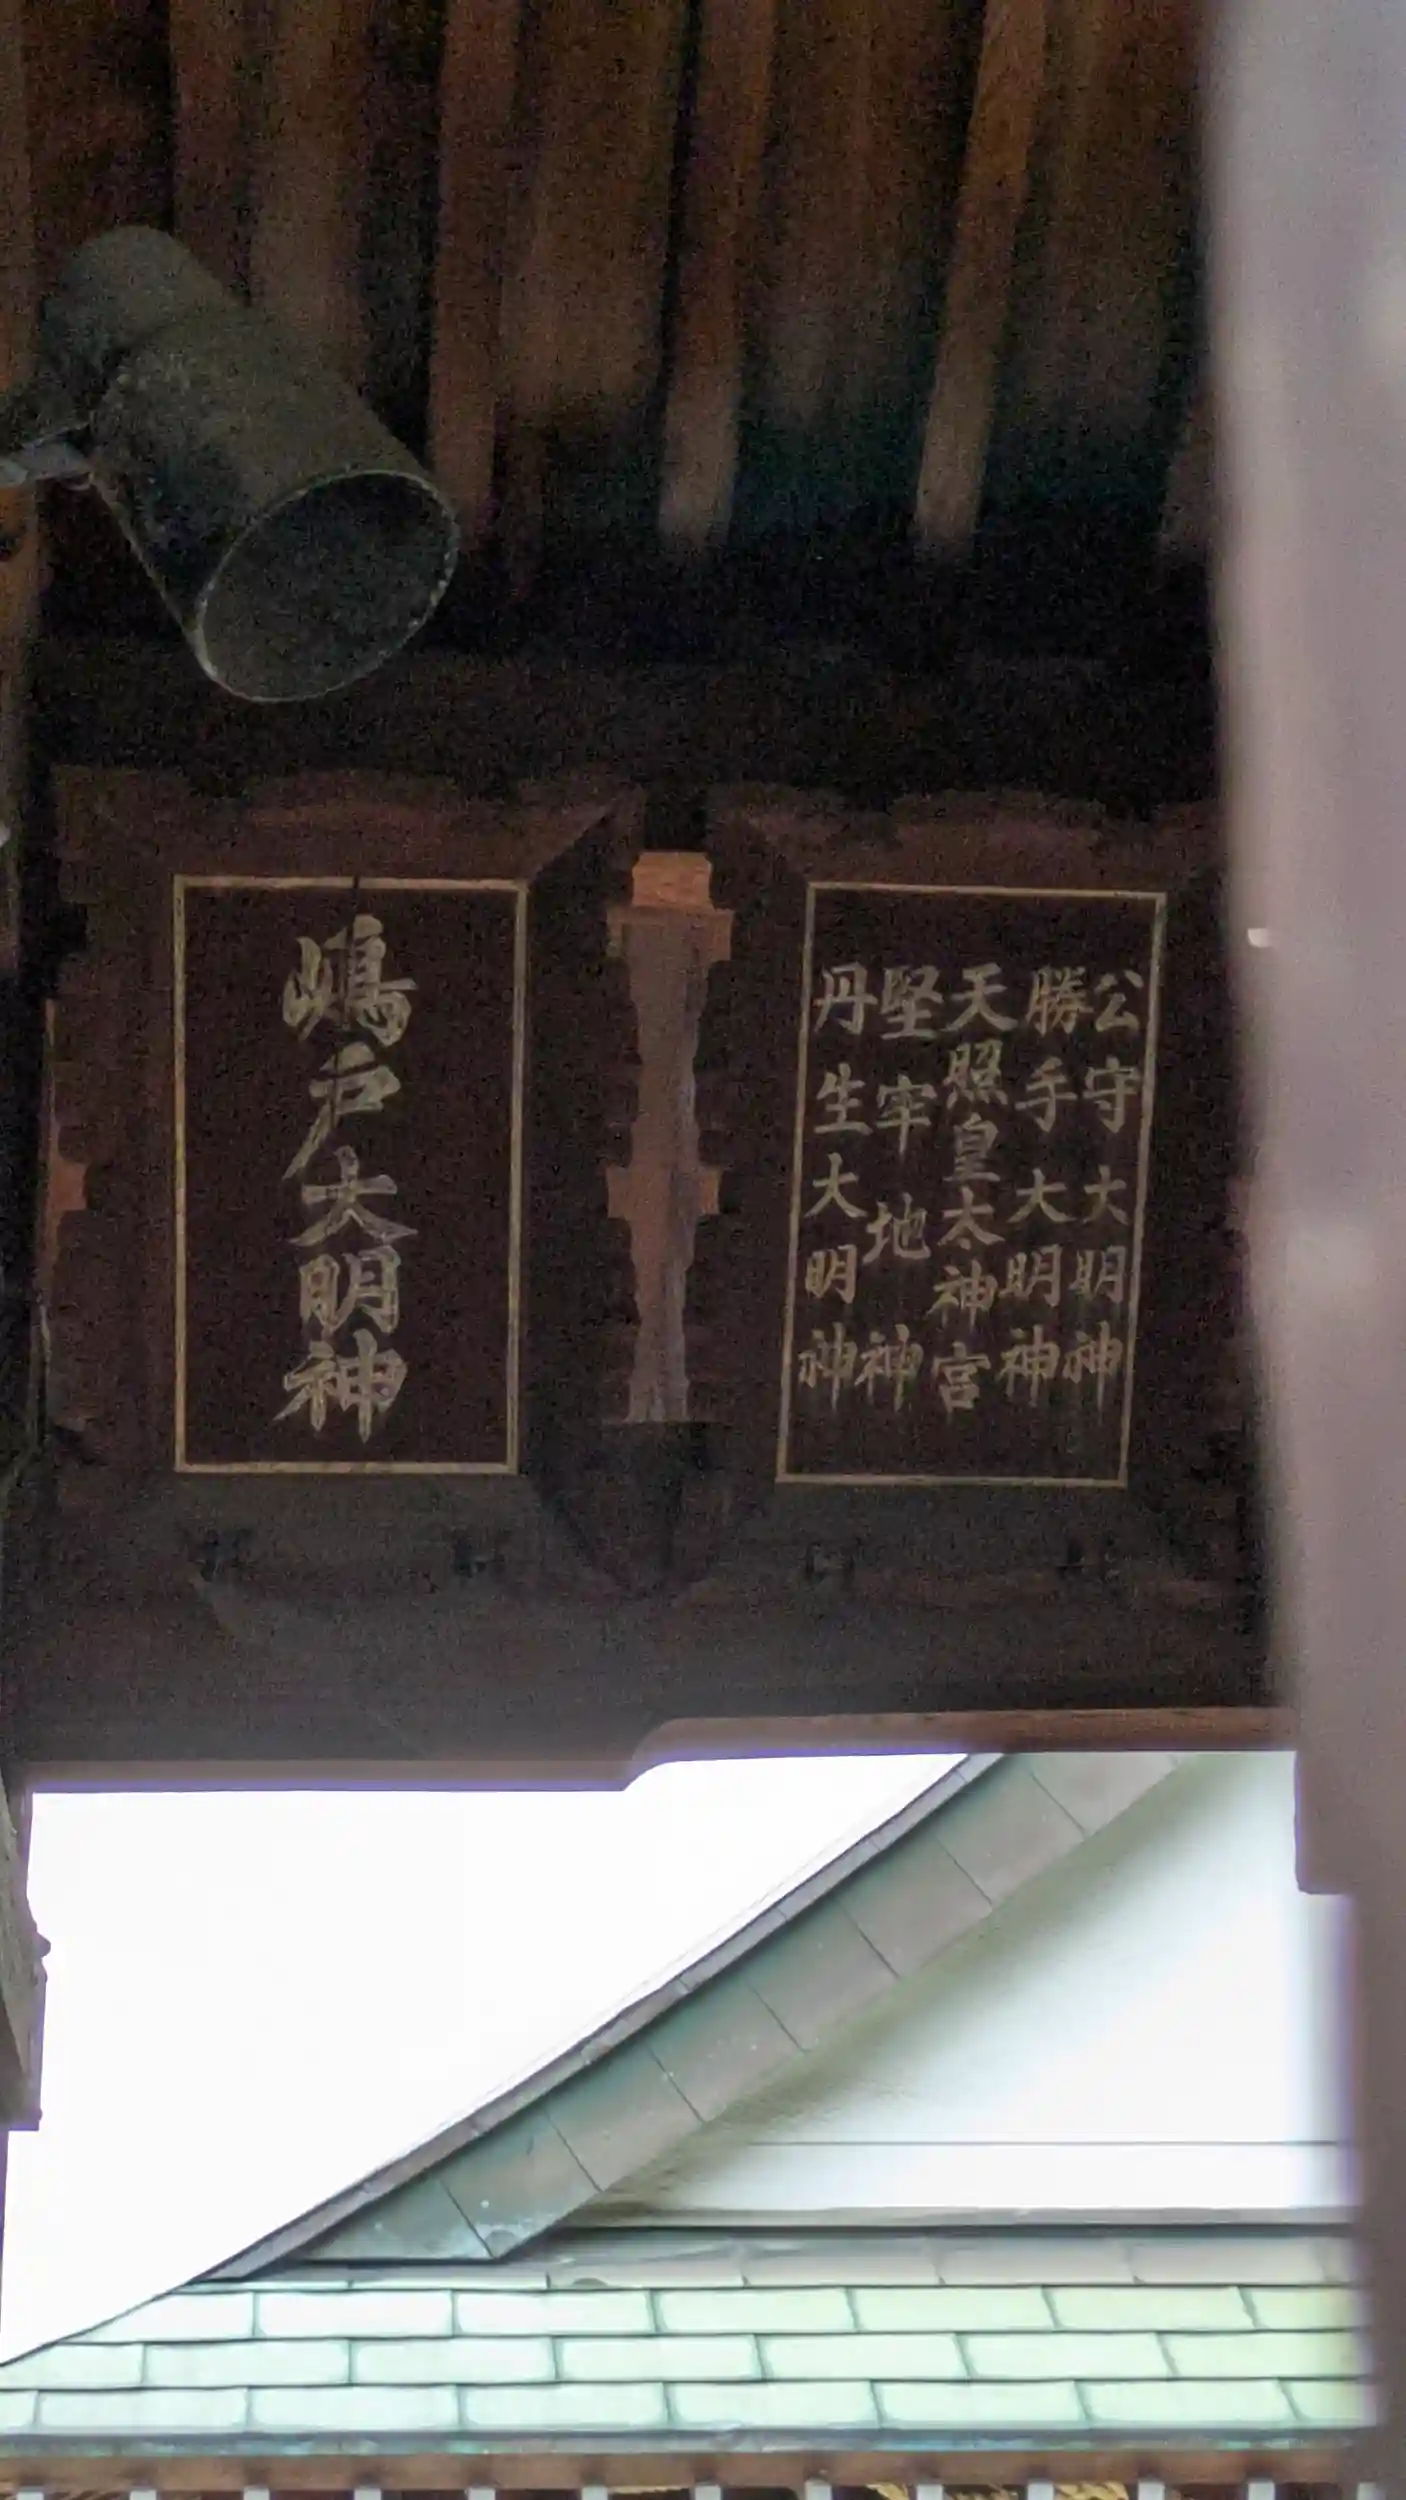 公守大明神
勝手大明神
天照皇太神宮
堅牢地神
丹生大明神
嶋戸大明神